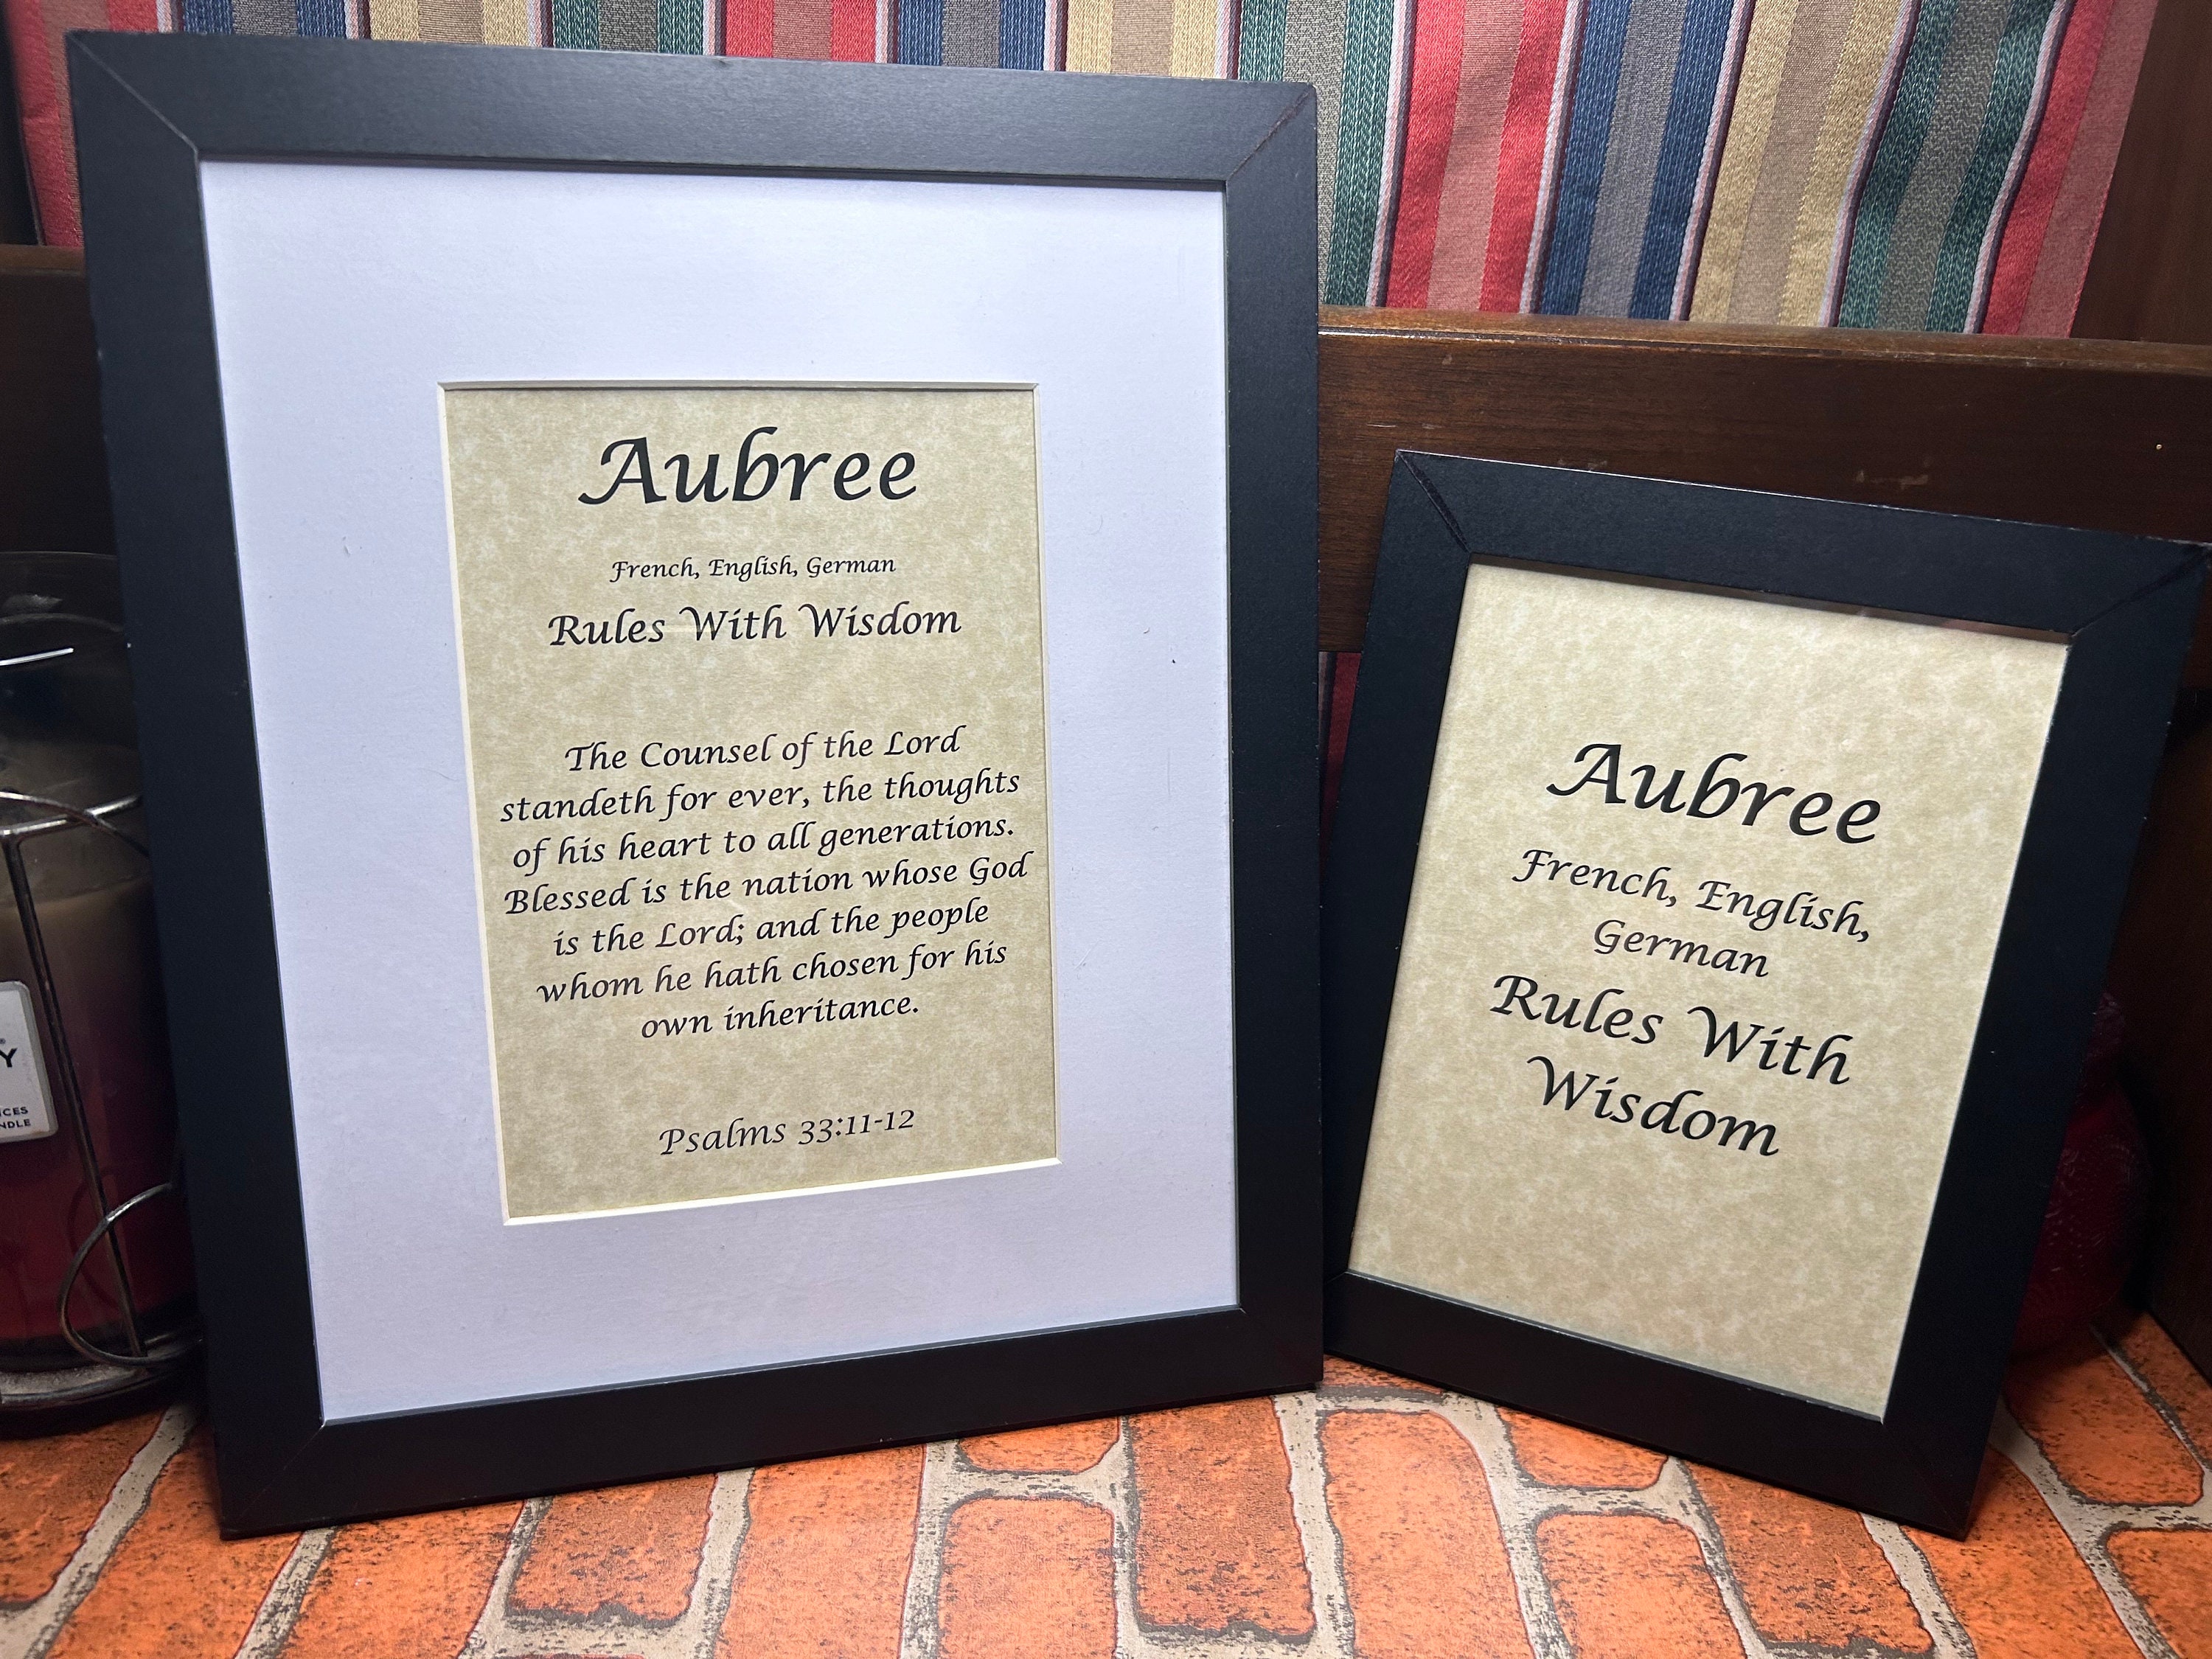 Aubree
French, English, German
Rules With Wisdom
The Counsel of the Lord
standeth for ever, the thoughts
of his heart to all generations.
Blessed is the nation whose God
is the Lord; and the people
whom he hath chosen for his
own inheritance.
Psalms 33:11-12
Aubree
French, English,
German
Rules With
Wisdom